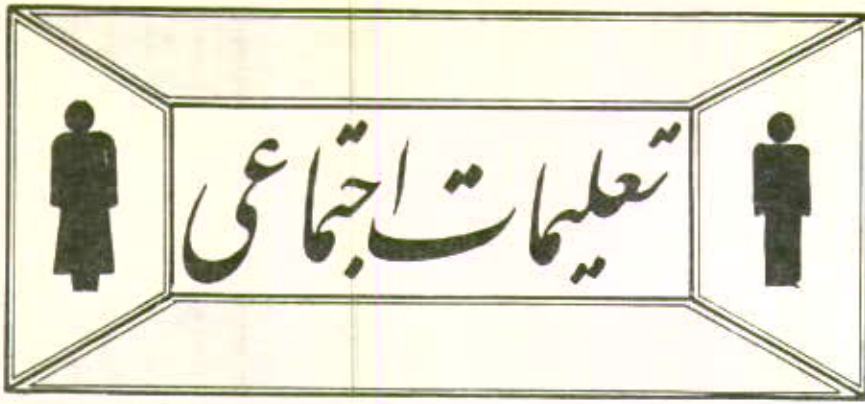 تعلیمات اجتماعی